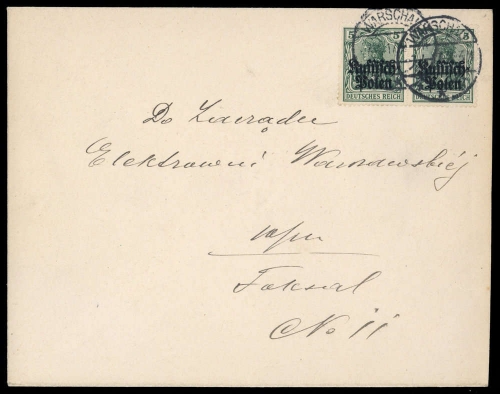 WARSCHAU WARSCHAU
5 5 5
Russisch-Polen Russisch-Polen
DEUTSCHES REICH DEUTSCHES REICH
Do Zarządu
Elektrowni Warszawskiéj
w/m
Foksal
No 11